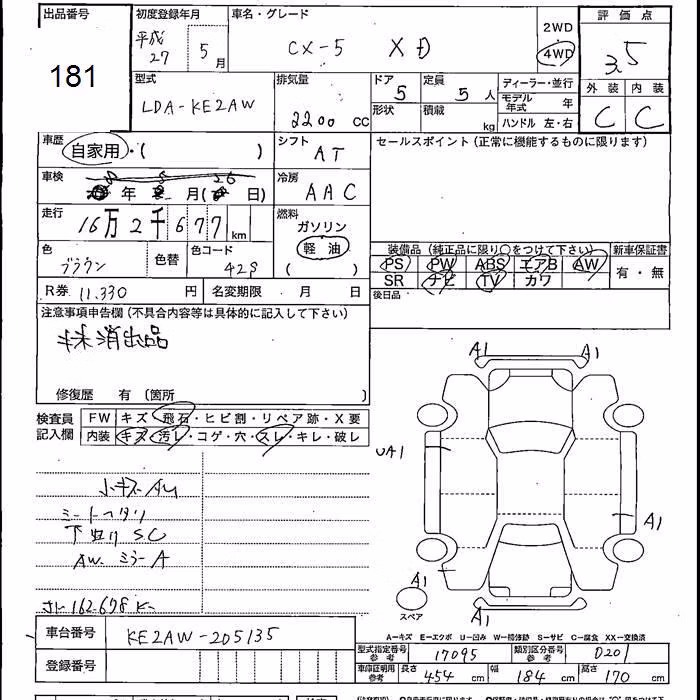 出品番号
181
初度登録年月
平成
27 5月
車名・グレード
CX-5 XD
2WD
4WD
評価点
3.5
外装 内装
C C
型式
LDA-KE2AW
排気量
2200 cc
ドア
5
形状
定員
5人
積載
kg
ディーラー・並行
モデル年式 年
ハンドル 左・右
車歴
自家用・( )
シフト
AT
セールスポイント (正常に機能するものに限ります)
車検
年 月( 日)
冷房
AAC
走行
16万2千677km
燃料
ガソリン
軽油
( )
色
ブラウン
色替
色コード
42S
装備品 (純正品に限り○をつけて下さい)
PS PW ABS エアB AW
SR ナビ TV カワ
新車保証書
有・無
後日品
R券 11,330円
名変期限 月 日
注意事項申告欄 (不具合内容等は具体的に記入して下さい)
抹消出品
修復歴 有 (箇所 )
検査員
記入欄
FW キズ・飛石・ヒビ割・リペア跡・X要
内装 キズ・汚レ・コゲ・穴・スレ・キレ・破レ
小キズ AU
シートヘタリ
下廻り SC
AW ミラー A
162,678 K
A1 A1
UA1
A1
A1
スペア
A1
A-キズ E-エクボ U-凹み W-補修跡 S-サビ C-腐食 XX-交換済
車台番号
KE2AW-205135
登録番号
型式指定番号
参考
17095
類別区分番号
参考
0201
車庫証明用
参考
長さ 454 cm
幅 184 cm
高さ 170 cm